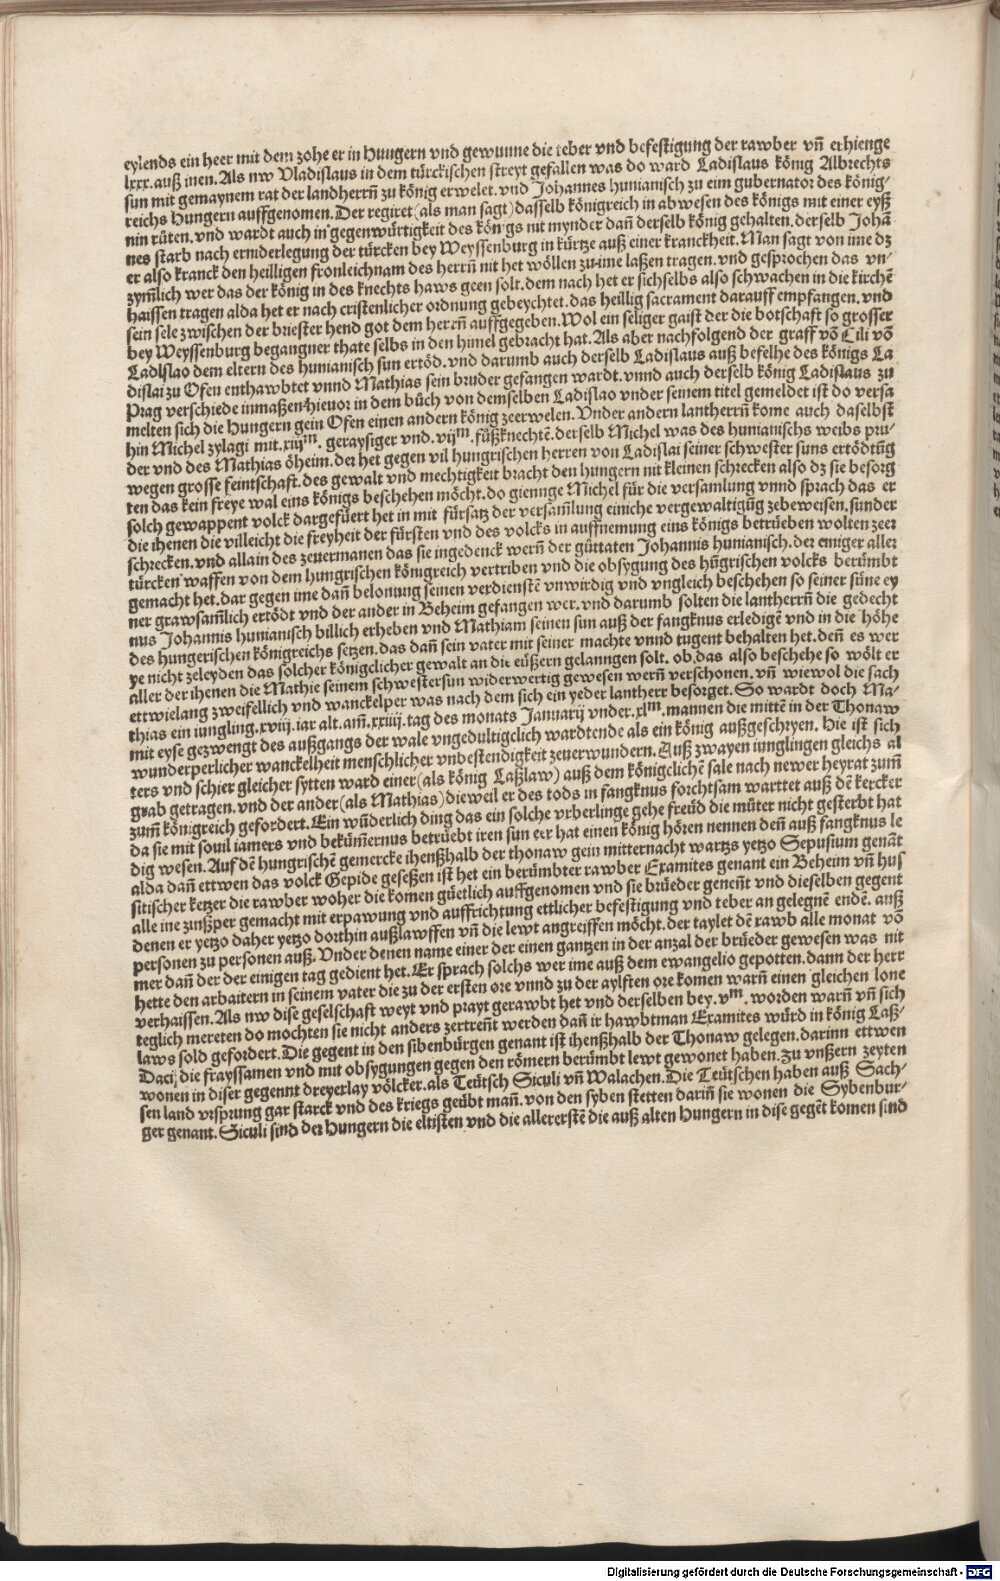 eylends ein heer mit dem zohe er in Hungern vnd gewunne die teber vnd befestigung der rawber vñ erhienge
lxxx. auß inen. Als nw Vladislaus in dem türckischen streyt gefallen was do ward Ladislaus könig Albrechts
sun mit gemaynem rat der landherrñ zu könig erwelet. vnd Johannes hunianisch zu eim gubernator des könig-
reichs Hungern auffgenomen. Der regiret (als man sagt) dasselb königreich in abwesen des königs mit einer eyß
nin růten. vnd wardt auch in gegenwürtigkeit des königs nit mynder dañ derselb könig gehalten. derselb Johã
nes starb nach erniderlegung der türcken bey Weyssenburg in kürtze auß einer kranckheit. Man sagt von ime dz
er also kranck den heilligen fronleichnam des herrñ nit het wöllen zu ime laßen tragen. vnd gesprochen das vn-
zym̃lich wer das der könig in des knechts haws geen solt. dem nach het er sichselbs also schwachen in die kirchẽ
haissen tragen alda het er nach cristenlicher ordnung gebeychtet. das heillig sacrament darauff empfangen. vnd
sein sele zwischen der briester hend got dem herrñ auffgegeben. Wol ein seliger gaist der die botschaft so grosser
bey Weyssenburg begangner thate selbs in den himel gebracht hat. Als aber nachfolgend der graff võ Cili võ
Ladlslao dem eltern des hunianisch sun ertöd. vnd darumb auch derselb Ladislaus auß befelhe des königs La
dislai zu Ofen enthawbtet vnnd Mathias sein bruder gefangen wardt. vnnd auch derselb könig Ladislaus zu
Prag verschiede inmaßen hieuor in dem bůch von demselben Ladislao vnder seinem titel gemeldet ist do versa
melten sich die Hungern gein Ofen einen andern könig zeerwelen. Vnder andern lantherrñ kome auch daselbst
hin Michel zylagi mit .xiijm. geraysiger vnd .vijm. fůßknechtẽ. derselb Michel was des hunianischs weibs pru-
der vnd des Mathias öheim. der het gegen vil hungrischen herren von Ladislai seiner schwester suns ertödtũg
wegen grosse feintschaft. des gewalt vnd mechtigkeit bracht den hungern nit kleinen schrecken also dz sie besorg
ten das kein freye wal eins königs beschehen möcht. do giennge Michel für die versamlung vnnd sprach das er
solch gewappent volck dargefüert het in mit fürsatz der versam̃lung einiche vergewaltigũg zebeweisen. sunder
die ihenen die villeicht die freyheit der fürsten vnd des volcks in auffnemung eins königs betrüeben wolten zeer
schrecken. vnd allain des zeuermanen das sie ingedenck werñ der gůttaten Johannis hunianisch. der einiger aller
türcken waffen von dem hungrischen königreich vertriben vnd die obsygung des hũgrischen volcks berümbt
gemacht het. dar gegen ime dañ belonung seinen verdienstẽ vnwirdig vnd vngleich beschehen so seiner süne ey
ner grawsam̃lich ertödt vnd der ander in Beheim gefangen wer. vnd darumb solten die lantherrñ die gedecht
nus Johannis hunianisch billich erheben vnd Mathiam seinen sun auß der fangknus erledigẽ vnd in die höhe
des hungerischen königreichs setzen. das dañ sein vater mit seiner machte vnnd tugent behalten het. deñ es wer
ye nicht zeleyden das solcher königclicher gewalt an die eüßern gelanngen solt. ob das also beschehe so wölt er
aller der ihenen die Mathie seinem schwestersun widerwertig gewesen werñ verschonen. vñ wiewol die sach
ettwielang zweifellich vnd wanckelper was nach dem sich ein yeder lantherr besorget. So wardt doch Ma-
thias ein iungling .xviii. iar alt. am̃ .xxiiij. tag des monats Januarij vnder .xlm. mannen die mittẽ in der Thonaw
mit eyse gezwengt des außgangs der wale vngedultigclich wardtende als ein könig außgeschryen. Hie ist sich
wunderperlicher wanckelheit menschlicher vnbestendigkeit zeuerwundern. Auß zwayen iunglingen gleichs al
ters vnd schier gleicher sytten ward einer (als könig Laßlaw) auß dem königclichẽ sale nach newer heyrat zum̃
grab getragen. vnd der ander (als Mathias) dieweil er des tods in fangknus forchtsam warttet auß dẽ kercker
zum̃ königreich gefordert. Ein wũderlich ding das ein solche vrberlinge gehe freüd die můter nicht gesterbt hat
da sie mit souil iamers vnd bekům̃ernus betrüebt iren sun eer hat einen könig hören nennen deñ auß fangknus le
dig wesen. Auf dẽ hungrischẽ gemercke ihenßhalb der thonaw gein mitternacht wartzs yetzo Sepusium genãt
alda dañ ettwen das volck Gepide geseßen ist het ein berümbter rawber Examites genant ein Beheim vñ hus
sitischer ketzer die rawber woher die komen güetlich auffgenomen vnd sie brüeder geneñt vnd dieselben gegent
alle ine zinßper gemacht mit erpawung vnd auffrichtung ettlicher befestigung vnd teber an gelegnẽ endẽ. auß
denen er yetzo daher yetzo dorthin außlawffen vñ die lewt angreiffen möcht. der taylet dẽ rawb alle monat võ
personen zu personen auß. Vnder denen name einer der einen gantzen in der anzal der brüeder gewesen was nit
mer dañ der der einigen tag gedient het. Er sprach solchs wer ime auß dem ewangelio gepotten. dann der herr
hette den arbaitern in seinem vater die zu der ersten ore vnnd zu der aylften ore komen warñ einen gleichen lone
verhaissen. Als nw dise geselschaft weyt vnd prayt gerawbt het vnd derselben bey .vm. worden warñ vñ sich
teglich mereten do mochten sie nicht anders zertreñt werden dañ ir hawbtman Examites würd in könig Laß-
laws sold gefordert. Die gegent in den sibenbürgen genant ist ihenßhalb der Thonaw gelegen. darinn ettwen
Daci, die frayssamen vnd mit obsygungen gegen den römern berümbt lewt gewonet haben. Zu vnßern zeyten
wonen in diser gegennt dreyerlay völcker. als Teütsch Siculi vñ Walachen. Die Teütschen haben auß Sach-
sen land vrsprung gar starck vnd des kriegs geübt mañ. von den syben stetten darin̄ sie wonen die Sybenbur-
ger genant. Siculi sind der Hungern die eltisten vnd die allererstẽ die auß alten Hungern in dise gegẽt komen sind
Digitalisierung gefördert durch die Deutsche Forschungsgemeinschaft - DFG